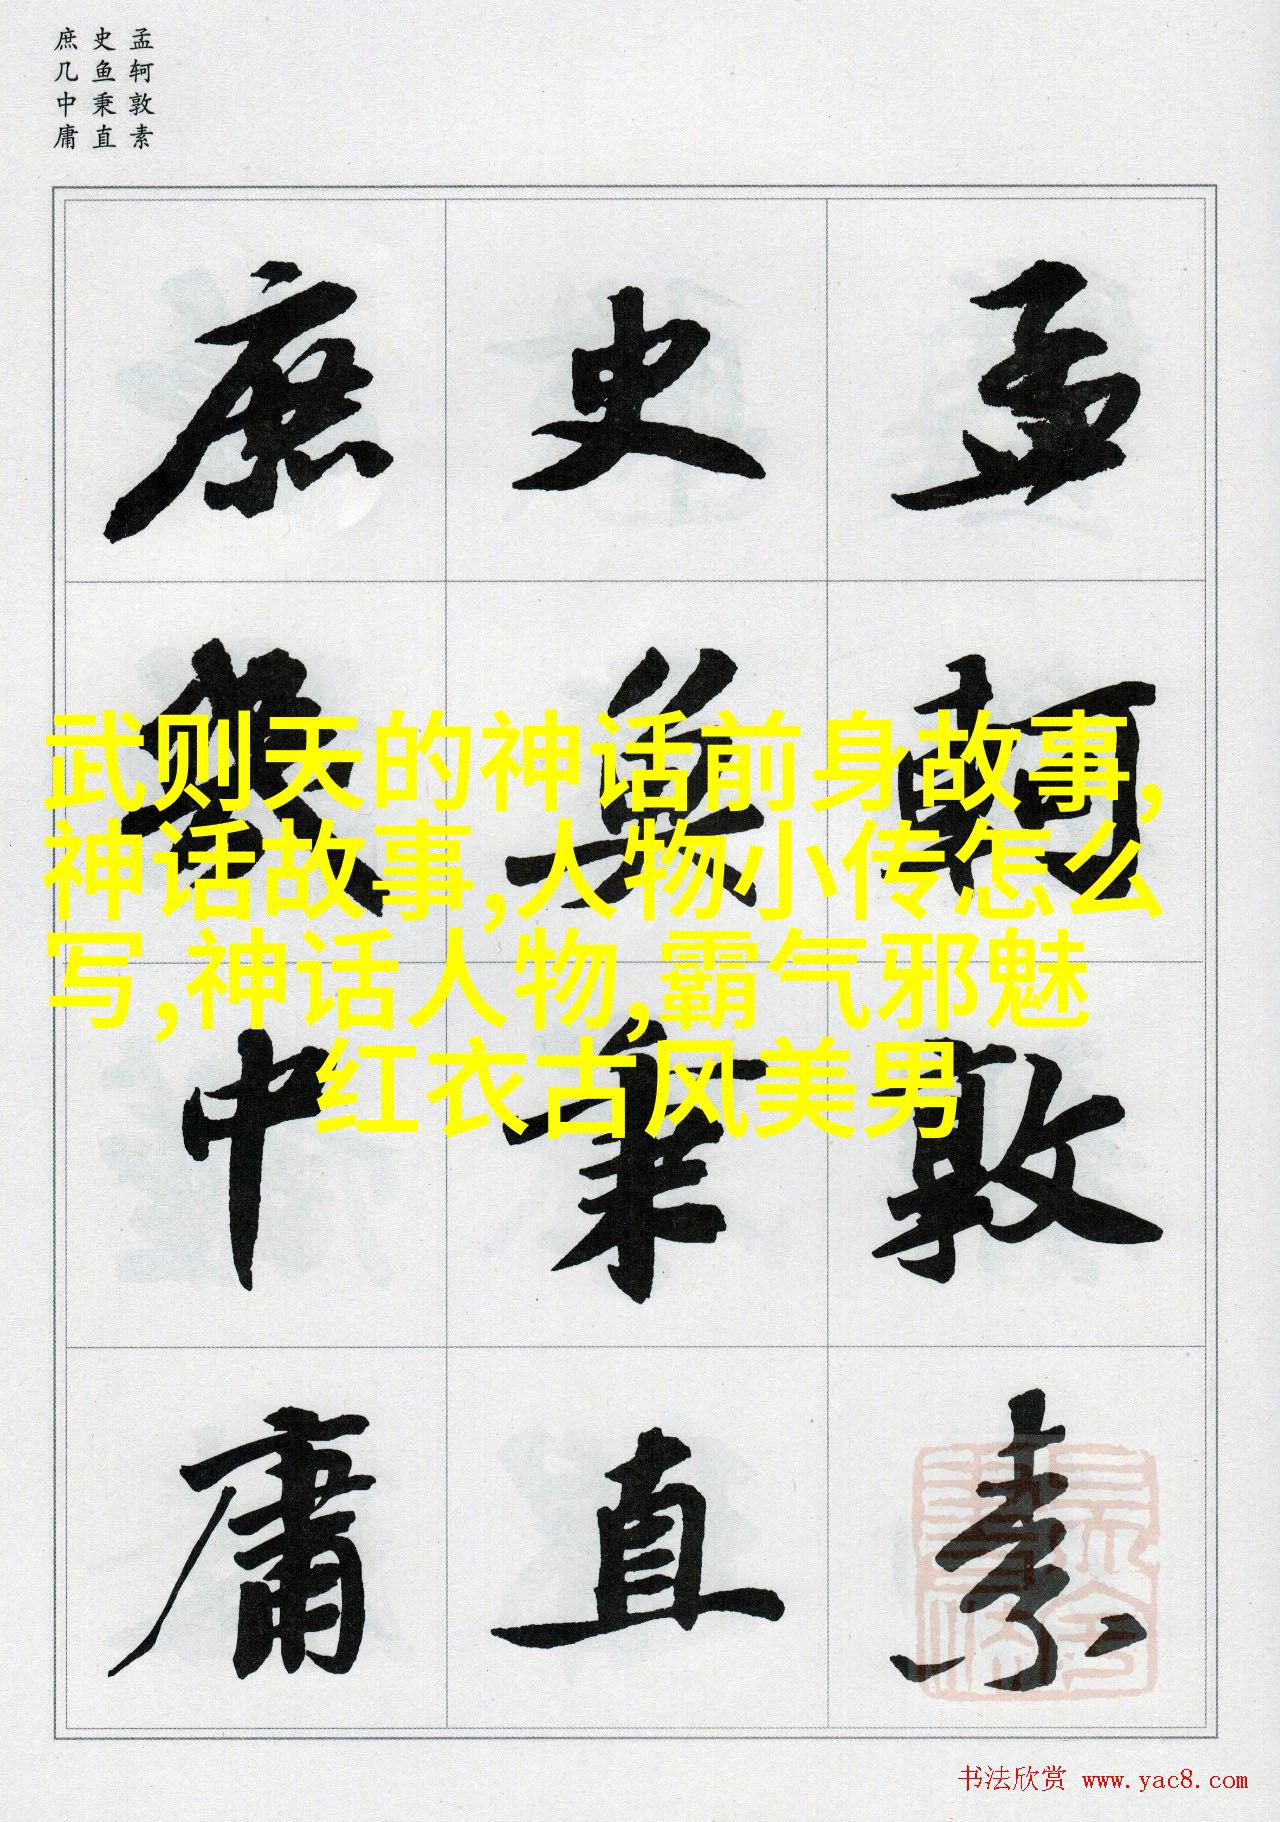 孟轲敦素
史鱼秉直
庶几中庸
孟軻敦素
史魚秉直
庶幾中庸
武则天的神话前身故事,
神话故事,人物小传怎么
写,神话人物,霸气邪魅
红衣古风美男
书法欣赏 www.yac8.com